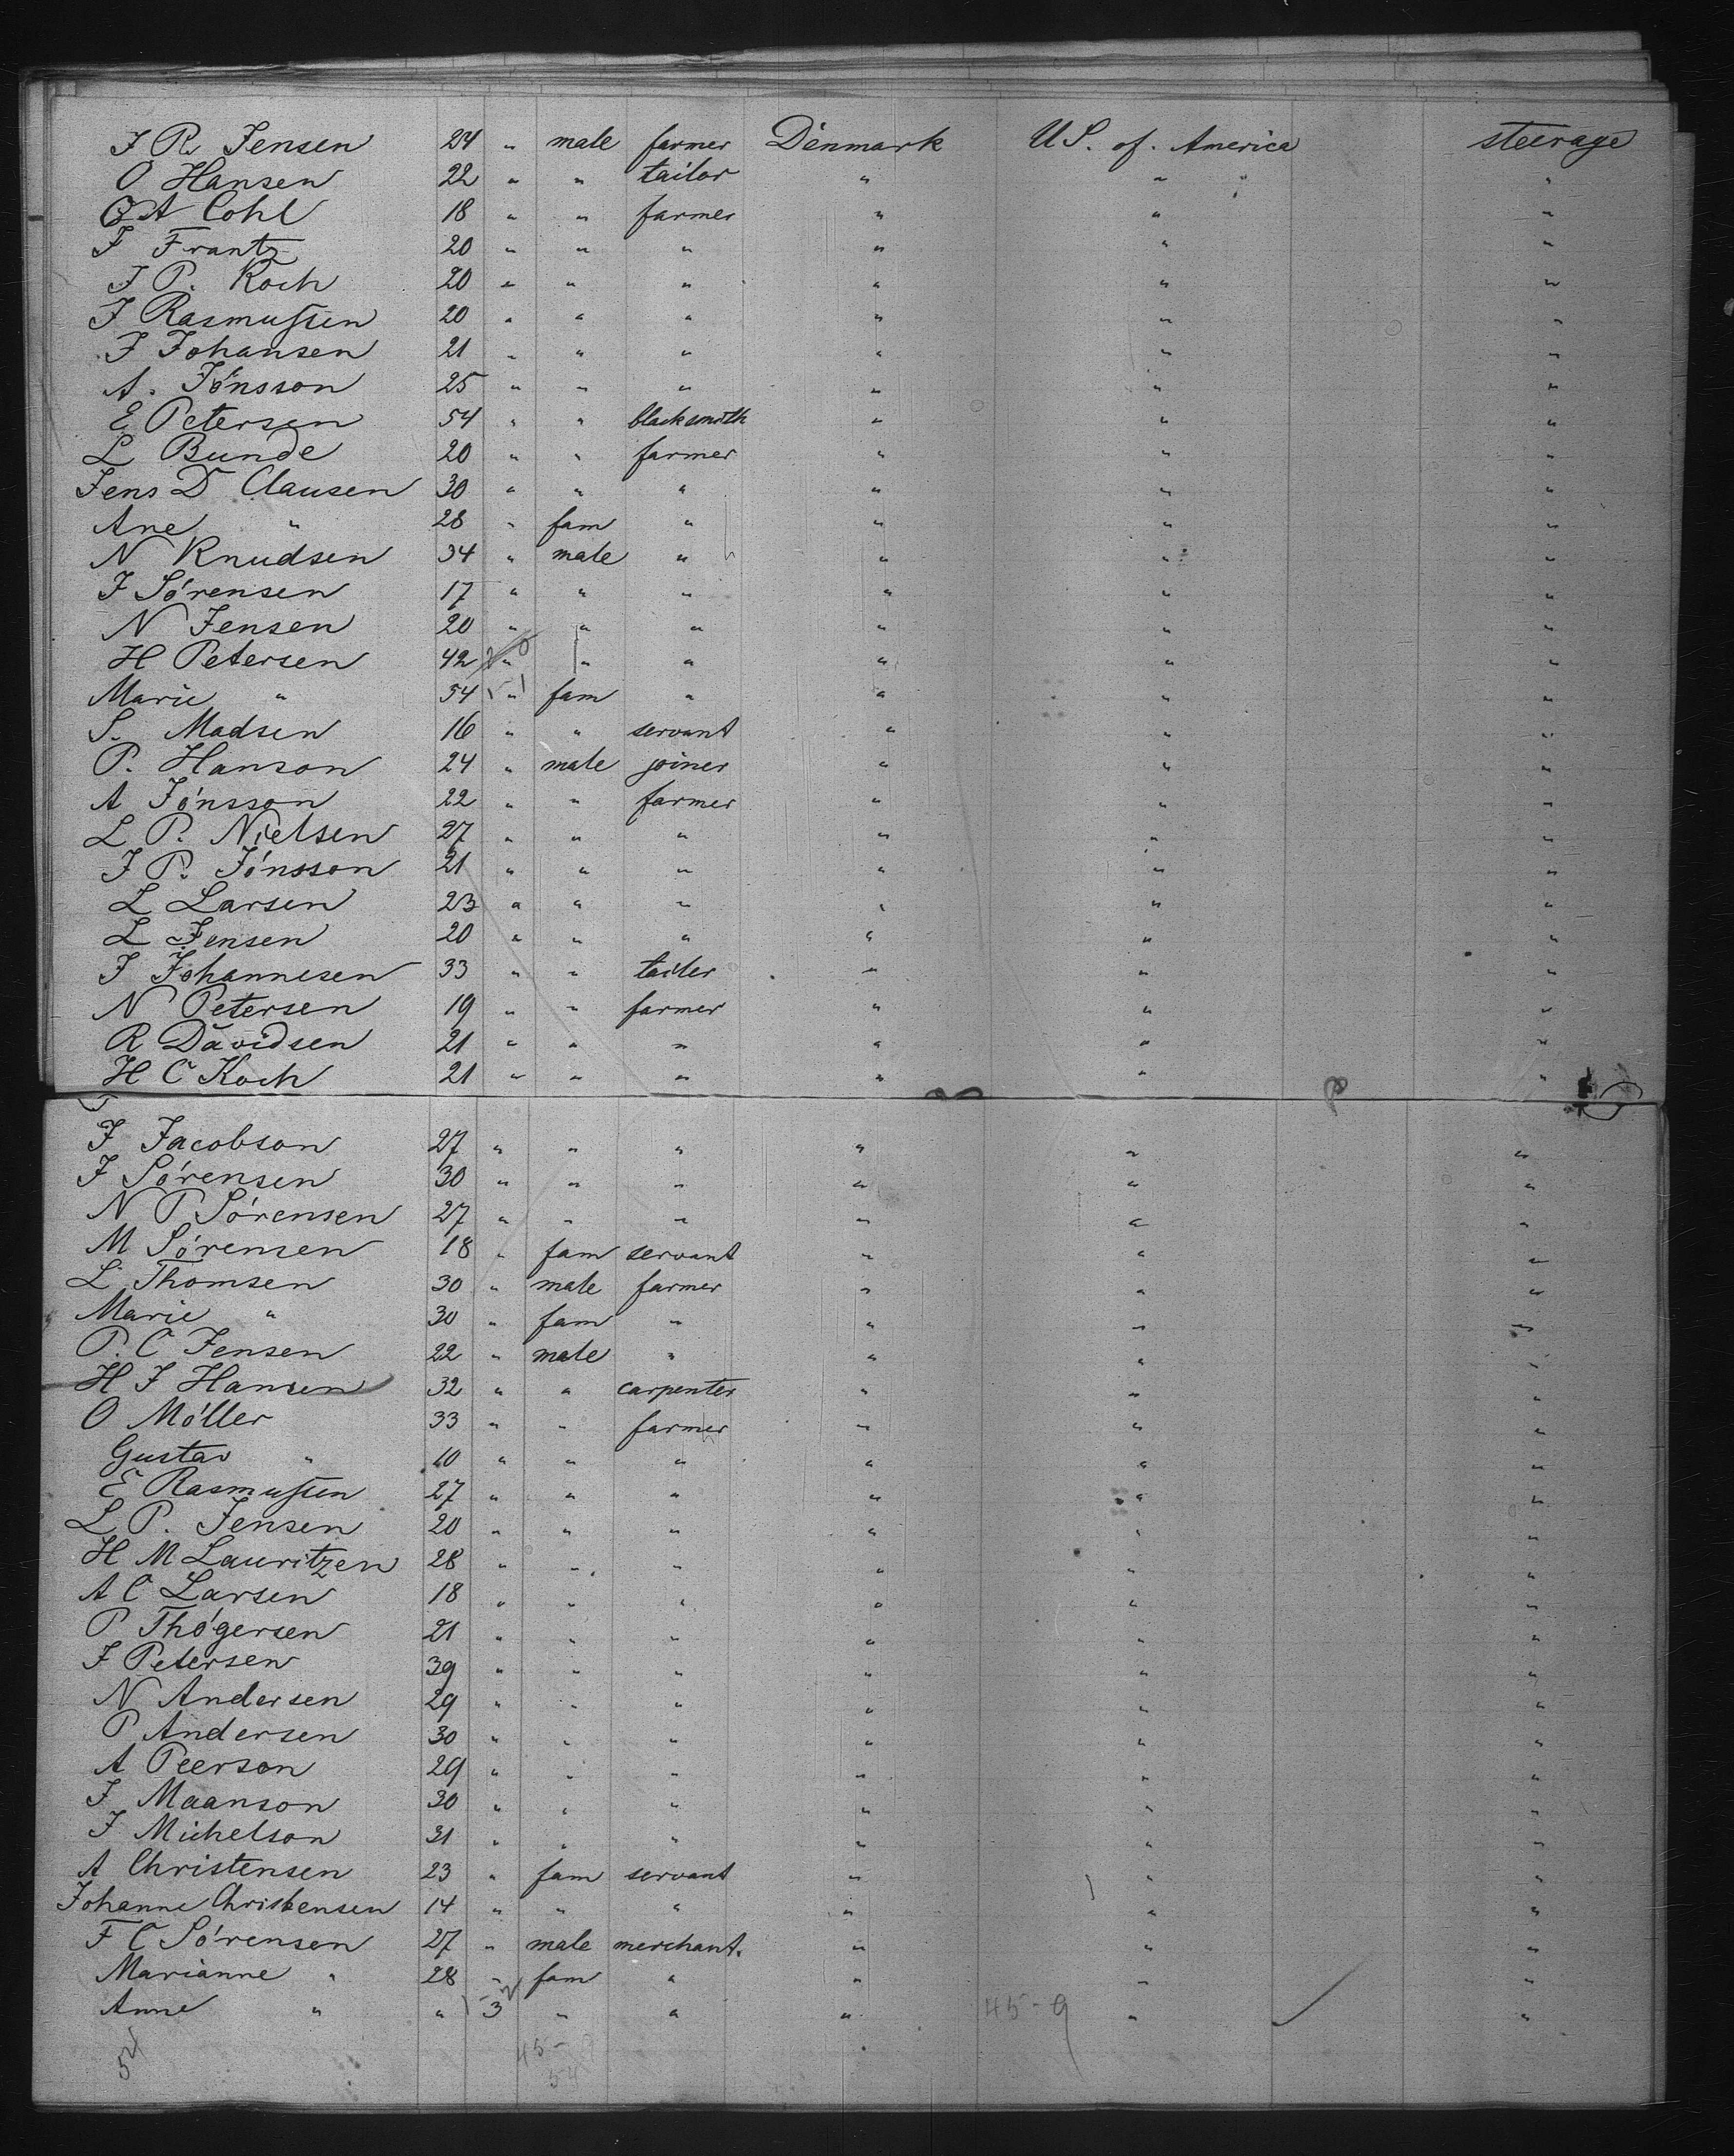 J R. Jensen 24 " male farmer Denmark U S. of. America steerage
O Hansen 22 " " tailor " " "
O A Cohl 18 " " farmer " " "
J Frantz 20 " " " " " "
J P. Koch 20 " " " " " "
J Rasmussen 20 " " " " " "
J Johansen 21 " " " " " "
A. Jónsson 25 " " " " " "
E Petersen 54 " " blacksmith " " "
L Bunde 20 " " farmer " " "
Jens D Clausen 30 " " " " " "
Ane " 28 " fam " " " "
N Knudsen 34 " male " " " "
J Sórensen 17 " " " " " "
N Jensen 20 " " " " " "
H Petersen 42 " " " " " "
Marie " 54 " fam " " " "
S. Madsen 16 " " servant " " "
P. Hanson 24 " male joiner " " "
A Jónsson 22 " " farmer " " "
L P. Nielsen 27 " " " " " "
J P. Jónsson 21 " " " " " "
L Larsen 23 " " " " " "
L Jensen 20 " " " " " "
J Johannesen 33 " " tailer " " "
N Petersen 19 " " farmer " " "
R Davidsen 21 " " " " " "
H C Koch 21 " " " " " "
J Jacobson 27 " " " " " "
J Sórensen 30 " " " " " "
N P Sórensen 27 " " " " " "
M Sórensen 18 " fam servant " " "
L Thomsen 30 " male farmer " " "
Marie " 30 " fam " " " "
P. C Jensen 22 " male " " " "
H J Hansen 32 " " carpenter " " "
O Móller 33 " " farmer " " "
Gustav " 10 " " " " " "
E Rasmussen 27 " " " " " "
L P. Jensen 20 " " " " " "
H M Lauritzen 28 " " " " " "
A C Larsen 18 " " " " " "
P Thógersen 21 " " " " " "
J Petersen 39 " " " " " "
N Andersen 29 " " " " " "
P Andersen 30 " " " " " "
A Peerson 29 " " " " " "
J Maanson 30 " " " " " "
J Michelson 31 " " " " " "
A Christensen 23 " fam servant " " "
Johanne Christensen 14 " " " " " "
F C Sórensen 27 " male merchant. " " "
Marianne " 28 " fam " " " "
Anne " " 3 " " " 45-9 " "
54 45-9
54